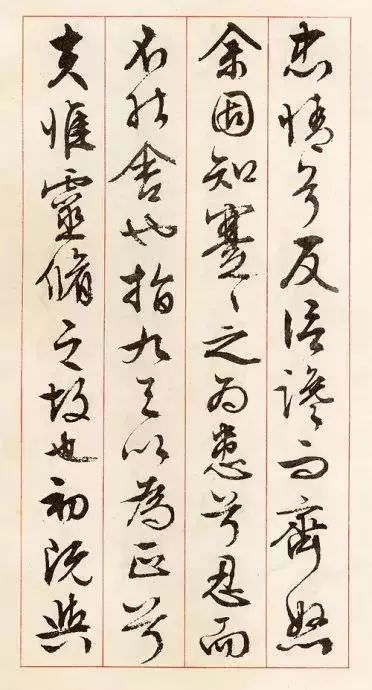 忠情兮反信讒而齊怒
余固知謇々之為患兮忍而
不能舍也指九天以為正兮
夫惟靈脩之故也初既與